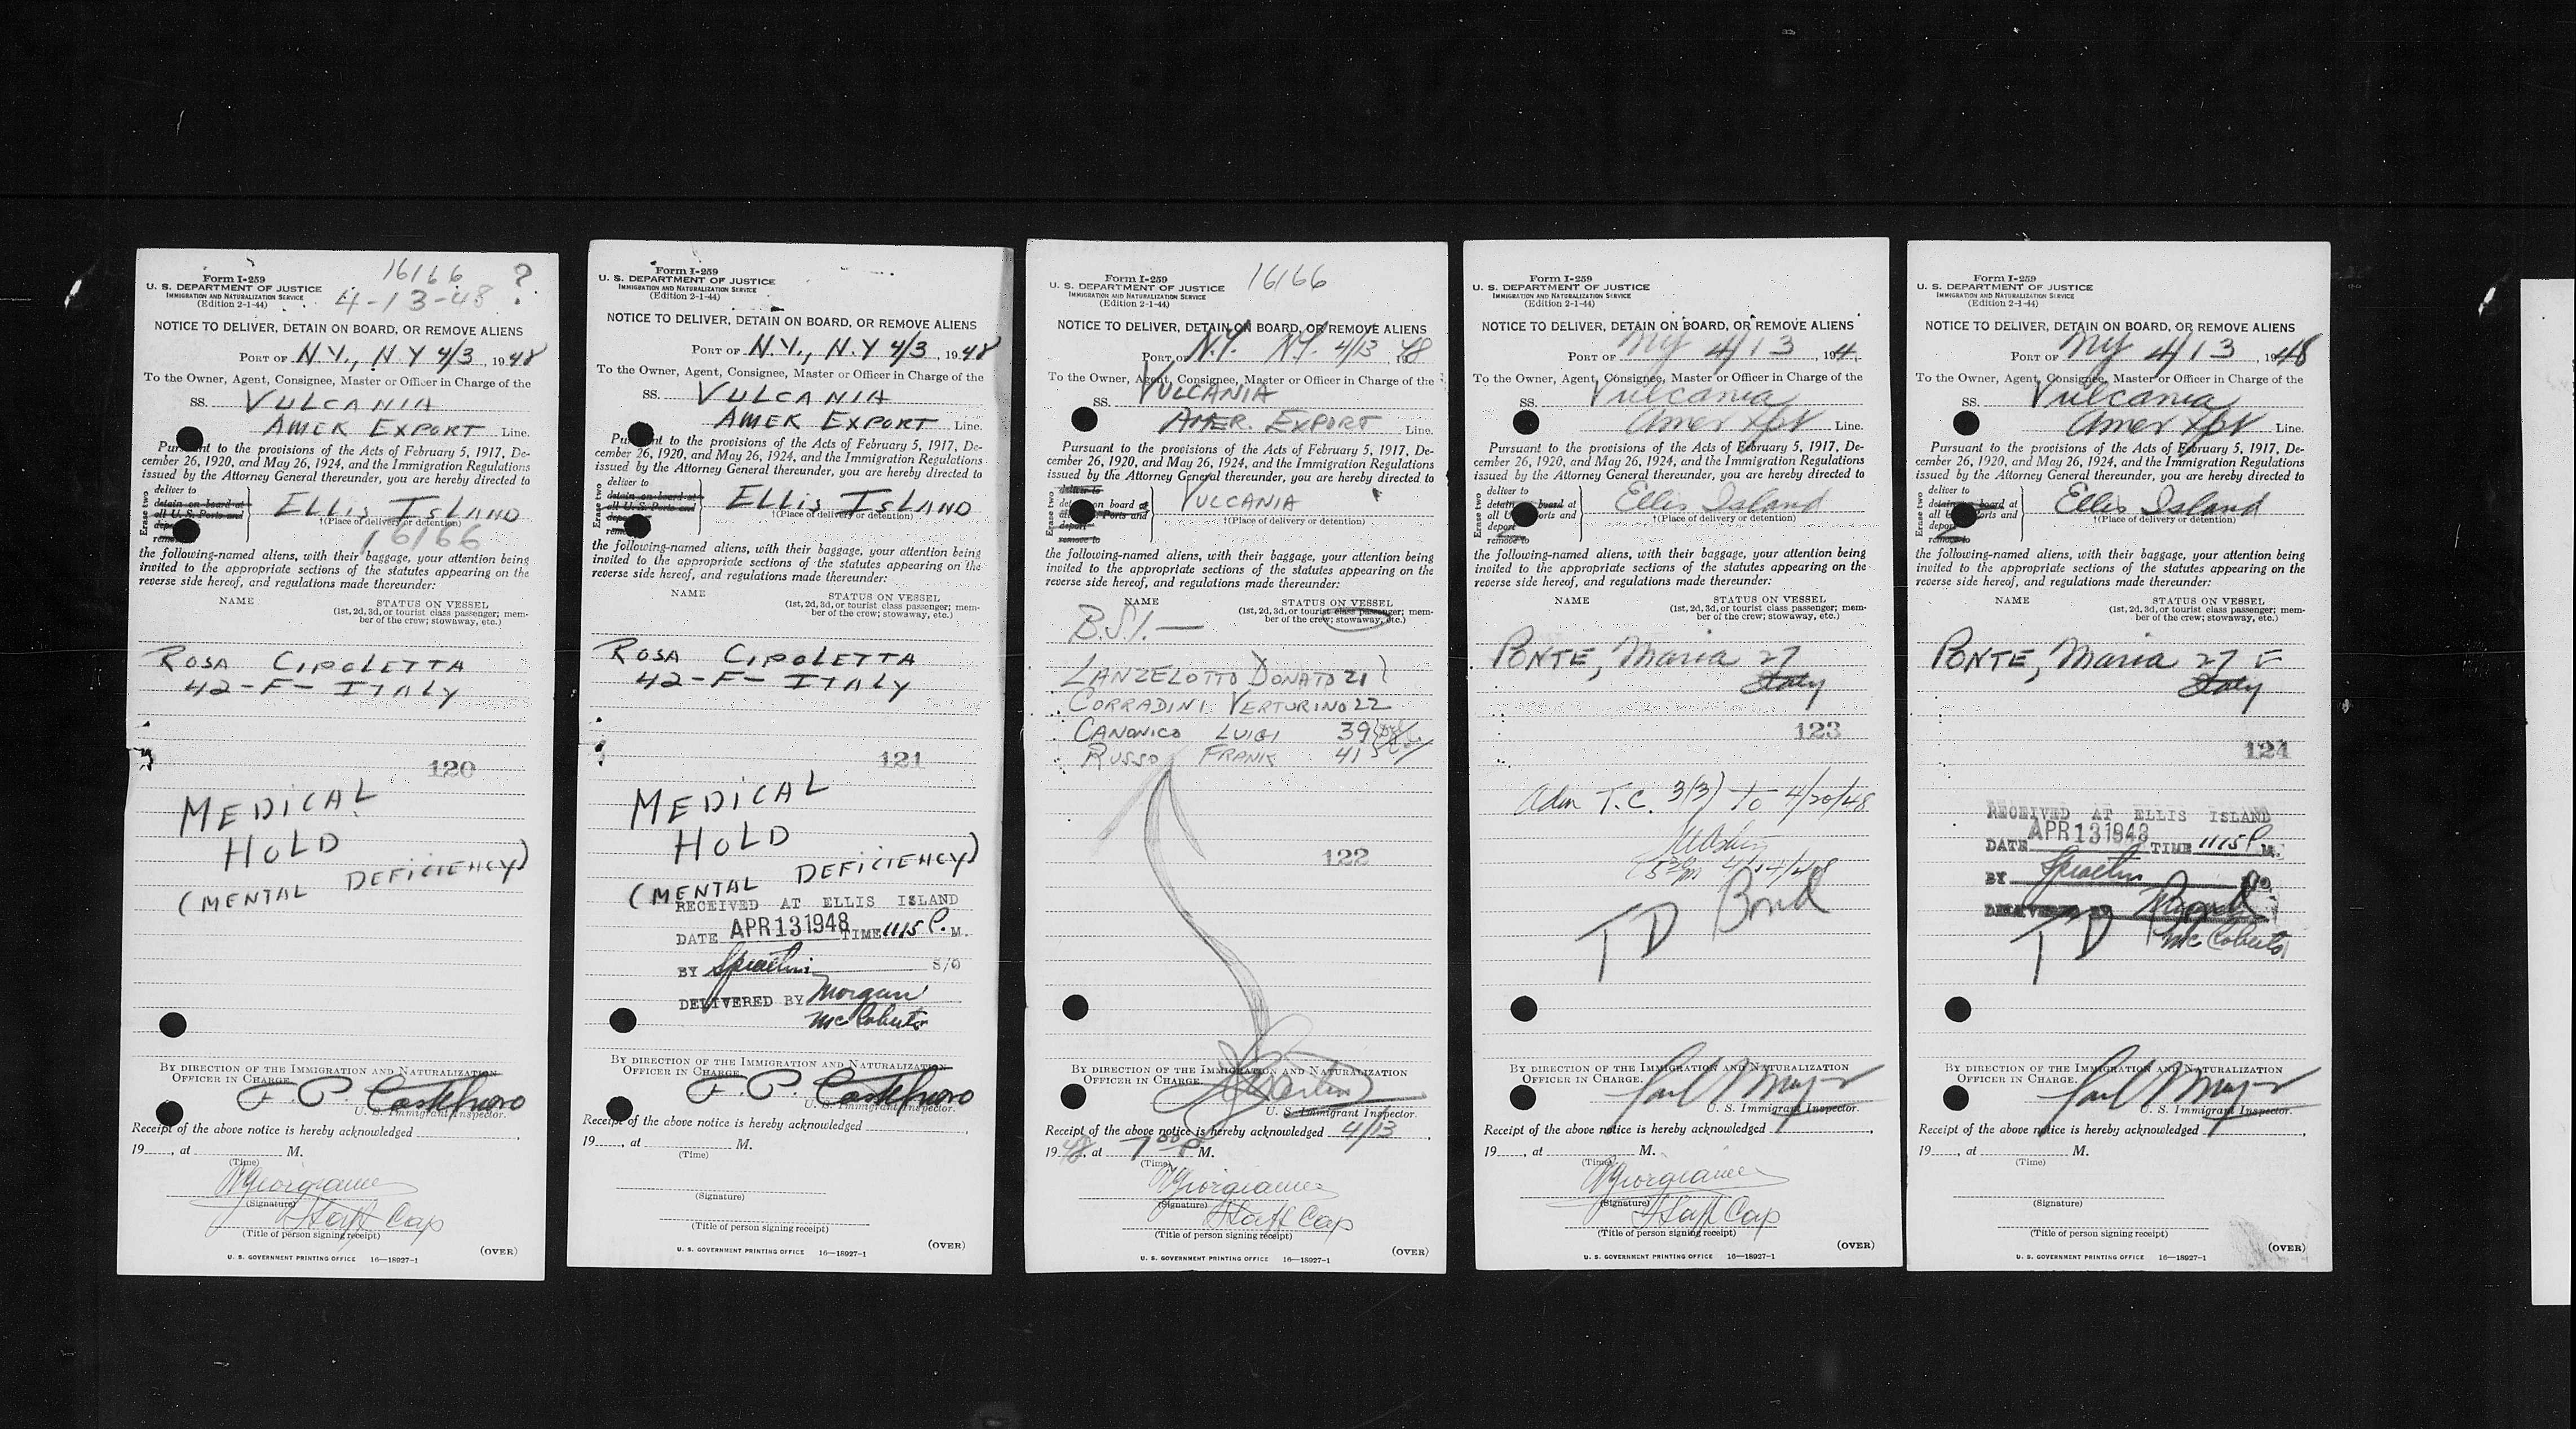 16166 ?
Form I-259
U. S. DEPARTMENT OF JUSTICE
IMMIGRATION AND NATURALIZATION SERVICE
(Edition 2-1-44)
4-13-48
NOTICE TO DELIVER, DETAIN ON BOARD, OR REMOVE ALIENS
PORT OF N.Y., N Y 4/3, 1948
To the Owner, Agent, Consignee, Master or Officer in Charge of the
SS. VULCANIA
AMER EXPORT Line.
Pursuant to the provisions of the Acts of February 5, 1917, De-
cember 26, 1920, and May 26, 1924, and the Immigration Regulations
issued by the Attorney General thereunder, you are hereby directed to
Erase two
deliver to
detain on board at
all U. S. Ports and
remove to
ELLIS ISLAND
†(Place of delivery or detention)
16166
the following-named aliens, with their baggage, your attention being
invited to the appropriate sections of the statutes appearing on the
reverse side hereof, and regulations made thereunder:
NAME STATUS ON VESSEL
(1st, 2d, 3d, or tourist class passenger; mem-
ber of the crew; stowaway, etc.)
ROSA CIPOLETTA
42-F- ITALY
120
MEDICAL
HOLD
(MENTAL DEFICIENCY)
BY DIRECTION OF THE IMMIGRATION AND NATURALIZATION
OFFICER IN CHARGE.
U. S. Immigrant Inspector.
Receipt of the above notice is hereby acknowledged
19, at M.
(Time)
(Signature)
Staff Cap
(Title of person signing receipt)
(OVER)
U. S. GOVERNMENT PRINTING OFFICE 16—18927-1
Form I-259
U. S. DEPARTMENT OF JUSTICE
IMMIGRATION AND NATURALIZATION SERVICE
(Edition 2-1-44)
NOTICE TO DELIVER, DETAIN ON BOARD, OR REMOVE ALIENS
PORT OF N.Y., N.Y 4/3, 1948
To the Owner, Agent, Consignee, Master or Officer in Charge of the
SS. VULCANIA
AMER EXPORT Line.
Pursuant to the provisions of the Acts of February 5, 1917, De-
cember 26, 1920, and May 26, 1924, and the Immigration Regulations
issued by the Attorney General thereunder, you are hereby directed to
Erase two
deliver to
detain on board at
all U. S. Ports and
ELLIS ISLAND
†(Place of delivery or detention)
the following-named aliens, with their baggage, your attention being
invited to the appropriate sections of the statutes appearing on the
reverse side hereof, and regulations made thereunder:
NAME STATUS ON VESSEL
(1st, 2d, 3d, or tourist class passenger; mem-
ber of the crew; stowaway, etc.)
ROSA CIPOLETTA
42-F- ITALY
121
MEDICAL
HOLD
(MENTAL DEFICIENCY)
RECEIVED AT ELLIS ISLAND
DATE APR 13 1948 TIME 1115 P. M.
BY S/O
DELIVERED BY Morgan
McRoberts
BY DIRECTION OF THE IMMIGRATION AND NATURALIZATION
OFFICER IN CHARGE.
U. S. Immigrant Inspector.
Receipt of the above notice is hereby acknowledged
19, at M.
(Time)
(Signature)
(Title of person signing receipt)
(OVER)
U. S. GOVERNMENT PRINTING OFFICE 16—18927-1
Form I-259
U. S. DEPARTMENT OF JUSTICE
IMMIGRATION AND NATURALIZATION SERVICE
(Edition 2-1-44)
16166
NOTICE TO DELIVER, DETAIN ON BOARD, OR REMOVE ALIENS
PORT OF N.Y. N.Y. 4/13 1948
To the Owner, Agent, Consignee, Master or Officer in Charge of the
SS. VULCANIA
AMER. EXPORT Line.
Pursuant to the provisions of the Acts of February 5, 1917, De-
cember 26, 1920, and May 26, 1924, and the Immigration Regulations
issued by the Attorney General thereunder, you are hereby directed to
Erase two
deliver to
detain on board at
Ports and
deport
remove to
VULCANIA
†(Place of delivery or detention)
the following-named aliens, with their baggage, your attention being
invited to the appropriate sections of the statutes appearing on the
reverse side hereof, and regulations made thereunder:
NAME STATUS ON VESSEL
(1st, 2d, 3d, or tourist class passenger; mem-
ber of the crew; stowaway, etc.)
B.S.I. —
LANZELOTTO DONATO 21
CORRADINI VERTURINO 22
CANONICO LUIGI 39
RUSSO FRANK 41
122
BY DIRECTION OF THE IMMIGRATION AND NATURALIZATION
OFFICER IN CHARGE.
U. S. Immigrant Inspector.
Receipt of the above notice is hereby acknowledged 4/13,
1948, at 7 00 P M.
(Time)
(Signature)
Staff Cap
(Title of person signing receipt)
(OVER)
U. S. GOVERNMENT PRINTING OFFICE 16—18927-1
Form I-259
U. S. DEPARTMENT OF JUSTICE
IMMIGRATION AND NATURALIZATION SERVICE
(Edition 2-1-44)
NOTICE TO DELIVER, DETAIN ON BOARD, OR REMOVE ALIENS
PORT OF NY 4/13, 194
To the Owner, Agent, Consignee, Master or Officer in Charge of the
SS. Vulcania
Amer Xpt Line.
Pursuant to the provisions of the Acts of February 5, 1917, De-
cember 26, 1920, and May 26, 1924, and the Immigration Regulations
issued by the Attorney General thereunder, you are hereby directed to
Erase two
deliver to
board at
all U. Ports and
deport
remove to
Ellis Island
†(Place of delivery or detention)
the following-named aliens, with their baggage, your attention being
invited to the appropriate sections of the statutes appearing on the
reverse side hereof, and regulations made thereunder:
NAME STATUS ON VESSEL
(1st, 2d, 3d, or tourist class passenger; mem-
ber of the crew; stowaway, etc.)
PONTE, Maria 27
Italy
123
Adm T.C. 3(3) to 4/20/48
4/14/48
TD Bond
BY DIRECTION OF THE IMMIGRATION AND NATURALIZATION
OFFICER IN CHARGE.
U. S. Immigrant Inspector.
Receipt of the above notice is hereby acknowledged
19, at M.
(Time)
(Signature)
Staff Cap
(Title of person signing receipt)
(OVER)
U. S. GOVERNMENT PRINTING OFFICE 16—18927-1
Form I-259
U. S. DEPARTMENT OF JUSTICE
IMMIGRATION AND NATURALIZATION SERVICE
(Edition 2-1-44)
NOTICE TO DELIVER, DETAIN ON BOARD, OR REMOVE ALIENS
PORT OF NY 4/13, 1948
To the Owner, Agent, Consignee, Master or Officer in Charge of the
SS. Vulcania
Amer Xpt Line.
Pursuant to the provisions of the Acts of February 5, 1917, De-
cember 26, 1920, and May 26, 1924, and the Immigration Regulations
issued by the Attorney General thereunder, you are hereby directed to
Erase two
deliver to
detain on board at
all U. Ports and
deport
remove to
Ellis Island
†(Place of delivery or detention)
the following-named aliens, with their baggage, your attention being
invited to the appropriate sections of the statutes appearing on the
reverse side hereof, and regulations made thereunder:
NAME STATUS ON VESSEL
(1st, 2d, 3d, or tourist class passenger; mem-
ber of the crew; stowaway, etc.)
PONTE, Maria 27 F
Italy
124
RECEIVED AT ELLIS ISLAND
DATE APR 13 1948 TIME 1115 P. M.
BY
DELIVERED BY
TD McRoberts
BY DIRECTION OF THE IMMIGRATION AND NATURALIZATION
OFFICER IN CHARGE.
U. S. Immigrant Inspector.
Receipt of the above notice is hereby acknowledged
19, at M.
(Time)
(Signature)
(Title of person signing receipt)
(OVER)
U. S. GOVERNMENT PRINTING OFFICE 16—18927-1